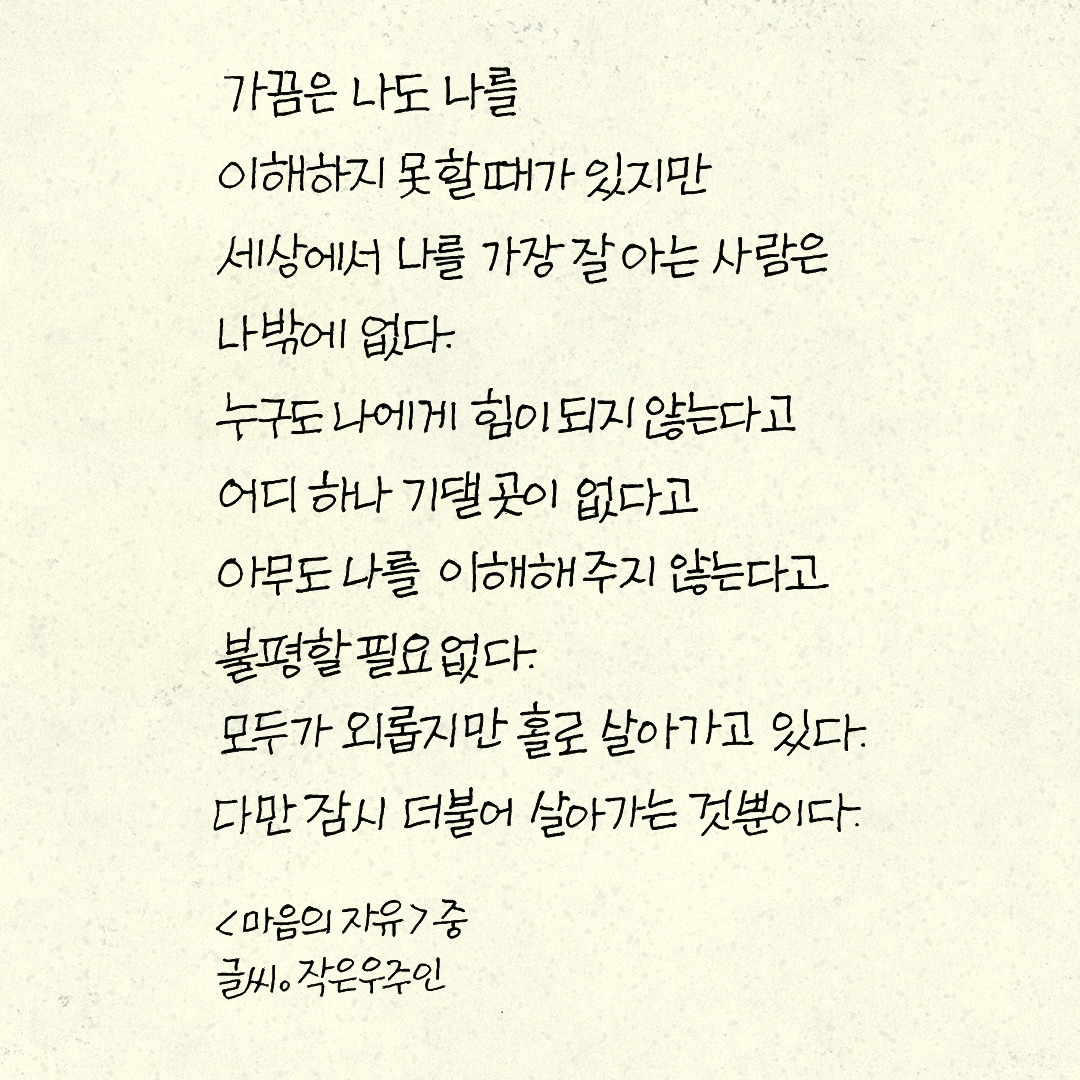 가끔은 나도 나를
이해하지 못할 때가 있지만
세상에서 나를 가장 잘 아는 사람은
나밖에 없다.
누구도 나에게 힘이 되지 않는다고
어디 하나 기댈 곳이 없다고
아무도 나를 이해해 주지 않는다고
불평할 필요 없다.
모두가 외롭지만 홀로 살아가고 있다.
다만 잠시 더불어 살아가는 것뿐이다.
<마음의 자유> 중
글씨。작은우주인